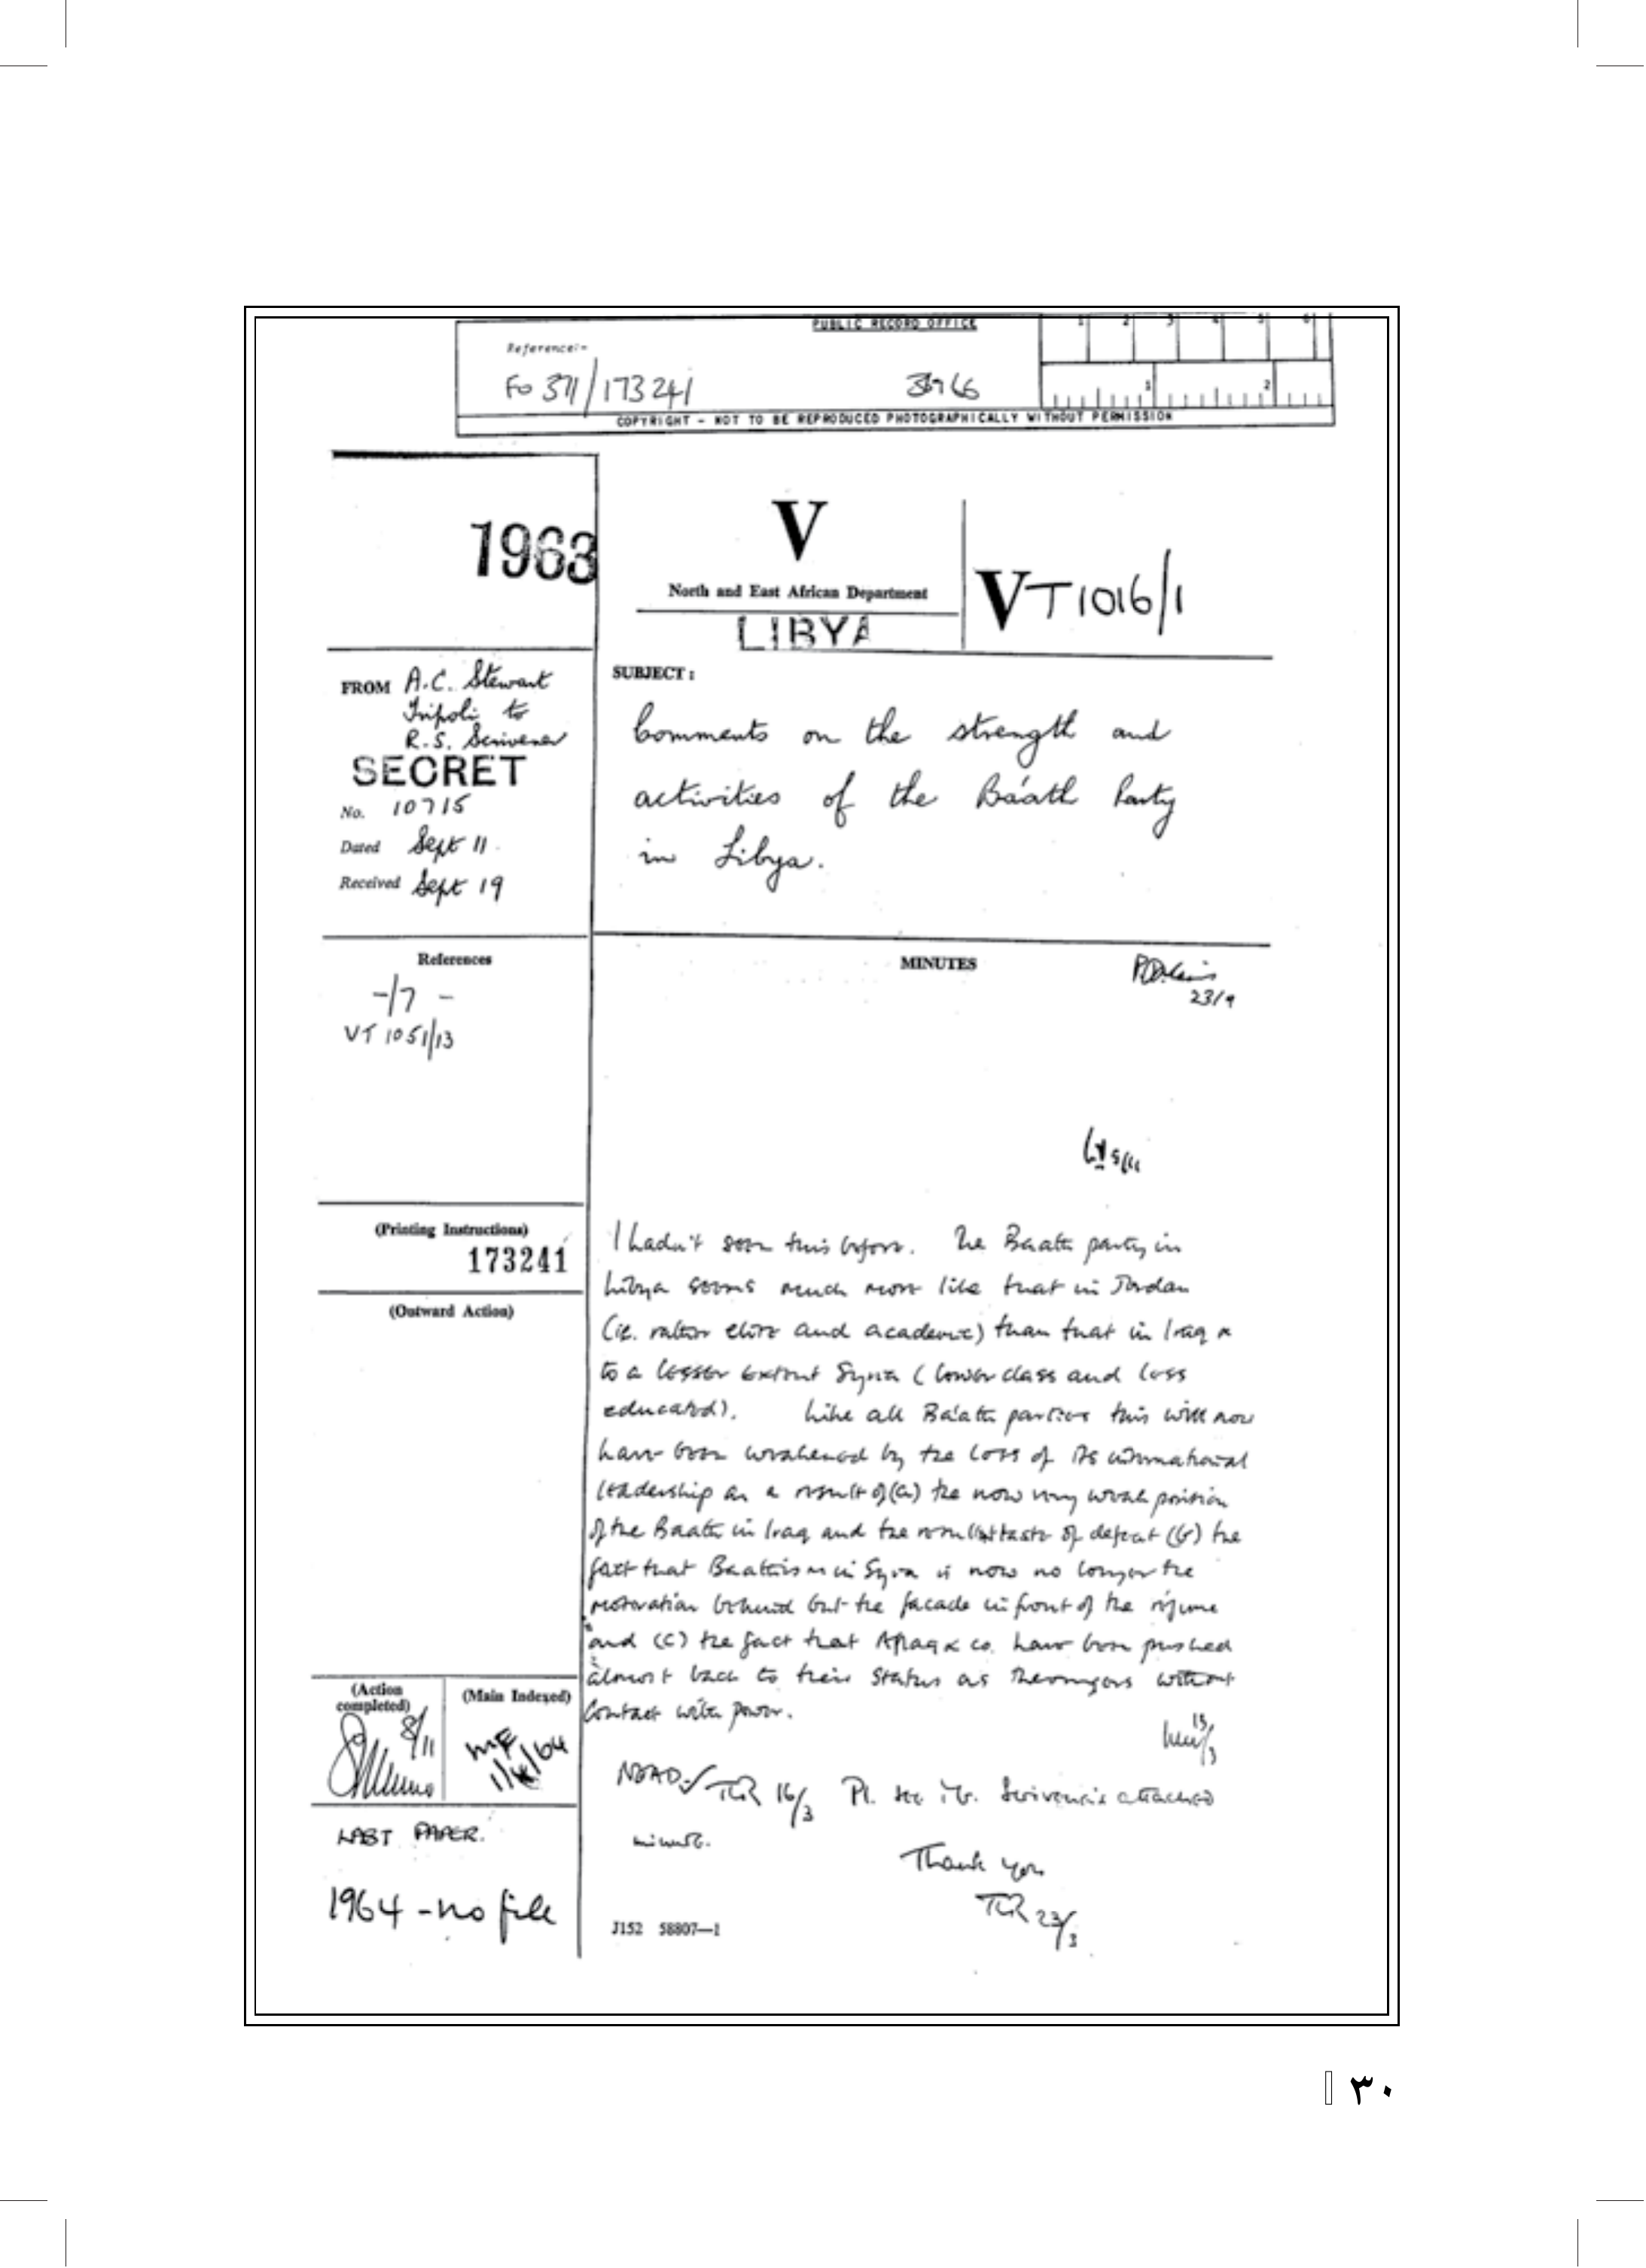 PUBLIC RECORD OFFICE
1 2 3 4 5 6
Reference:-
FO 371/173241
1 2
COPYRIGHT - NOT TO BE REPRODUCED PHOTOGRAPHICALLY WITHOUT PERMISSION
1963
V
North and East African Department
LIBYA
VT1016/1
FROM A.C. Stewart
Tripoli to
R.S. Scrivener
SECRET
No. 10715
Dated Sept 11.
Received Sept 19
SUBJECT:
Comments on the strength and
activities of the Ba'ath Party
in Libya.
References
-/7 -
VT 1051/13
MINUTES
23/9
(Printing Instructions)
173241
(Outward Action)
I hadn't seen this before. The Baath party in
Libya seems much more like that in Jordan
(ie. rather elite and academic) than that in Iraq &
to a lesser extent Syria (lower class and less
educated). Like all Ba'ath parties this will now
have been weakened by the loss of its international
leadership as a result of (a) the now very weak position
of the Baath in Iraq and the resultant taste of defeat (b) the
fact that Baathism in Syria is now no longer the
motivation behind but the facade in front of the régime
and (c) the fact that Aflaq & co. have been pushed
almost back to their status as theorisers without
contact with power.
15/3
(Action completed)
8/11
(Main Indexed)
1/4/64
NEAD. TCR 16/3 Pl. see Mr. Scrivener's attached
minute.
Thank you
TCR 23/3
LAST PAPER.
1964 - no file
J152 58807—1
٣٠